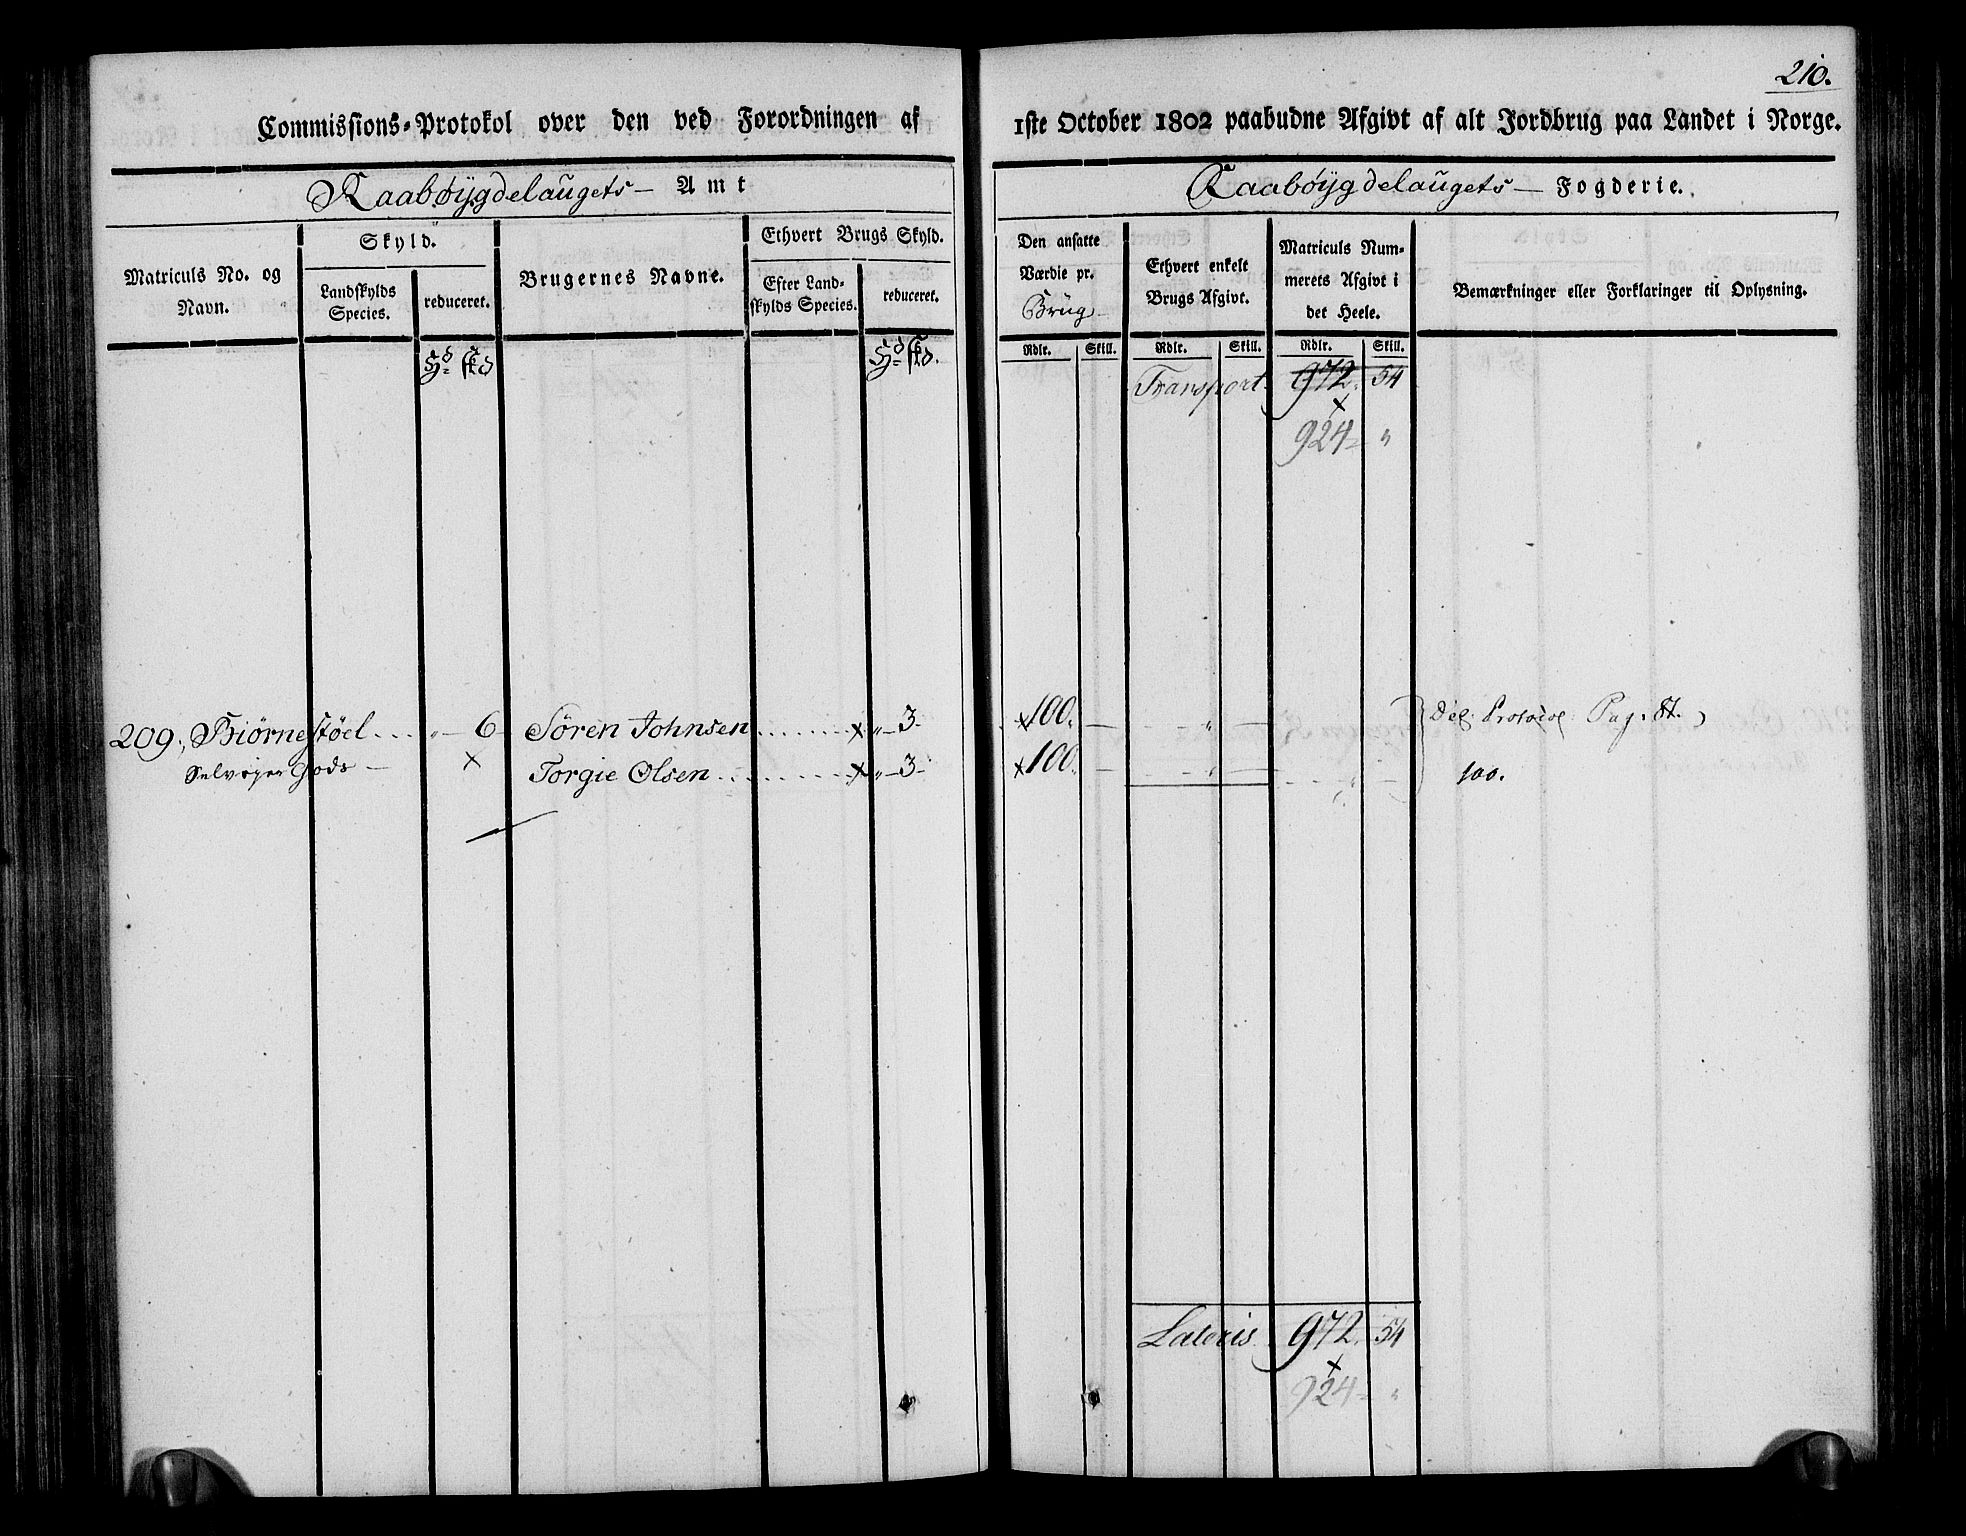 210.
Commissions-Protokol over den ved Forordningen af 1ste October 1802 paabudne Afgivt af alt Jordbrug paa Landet i Norge.
Raabøygdelaugets — Amt
Raabøygdelaugets — Fogderie.
Matriculs No. og Navn.
Skyld.
Landskylds Species.
reduceret.
Brugernes Navne.
Ethvert Brugs Skyld.
Efter Landskylds Species.
reduceret.
Den ansatte Værdie pr. Brug
Ethvert enkelt Brugs Afgivt.
Matriculs Nummerets Afgivt i det Heele.
Bemærkninger eller Forklaringer til Oplysning.
Rdlr. Skill. Rdlr. Skill. Rdlr. Skill.
Transport 972. 54
924 "
209, Biørnestøel . . . . " — 6 Sören Johnsen . . . . . . . x " — 3 — x 100. — " — Del. Protocol Pag. 
Selveyer Gods — x Torgie Olsen . . . . . . . x " — 3 — x 100. — " — " 100.
Lateris 972. 54
x
924 "